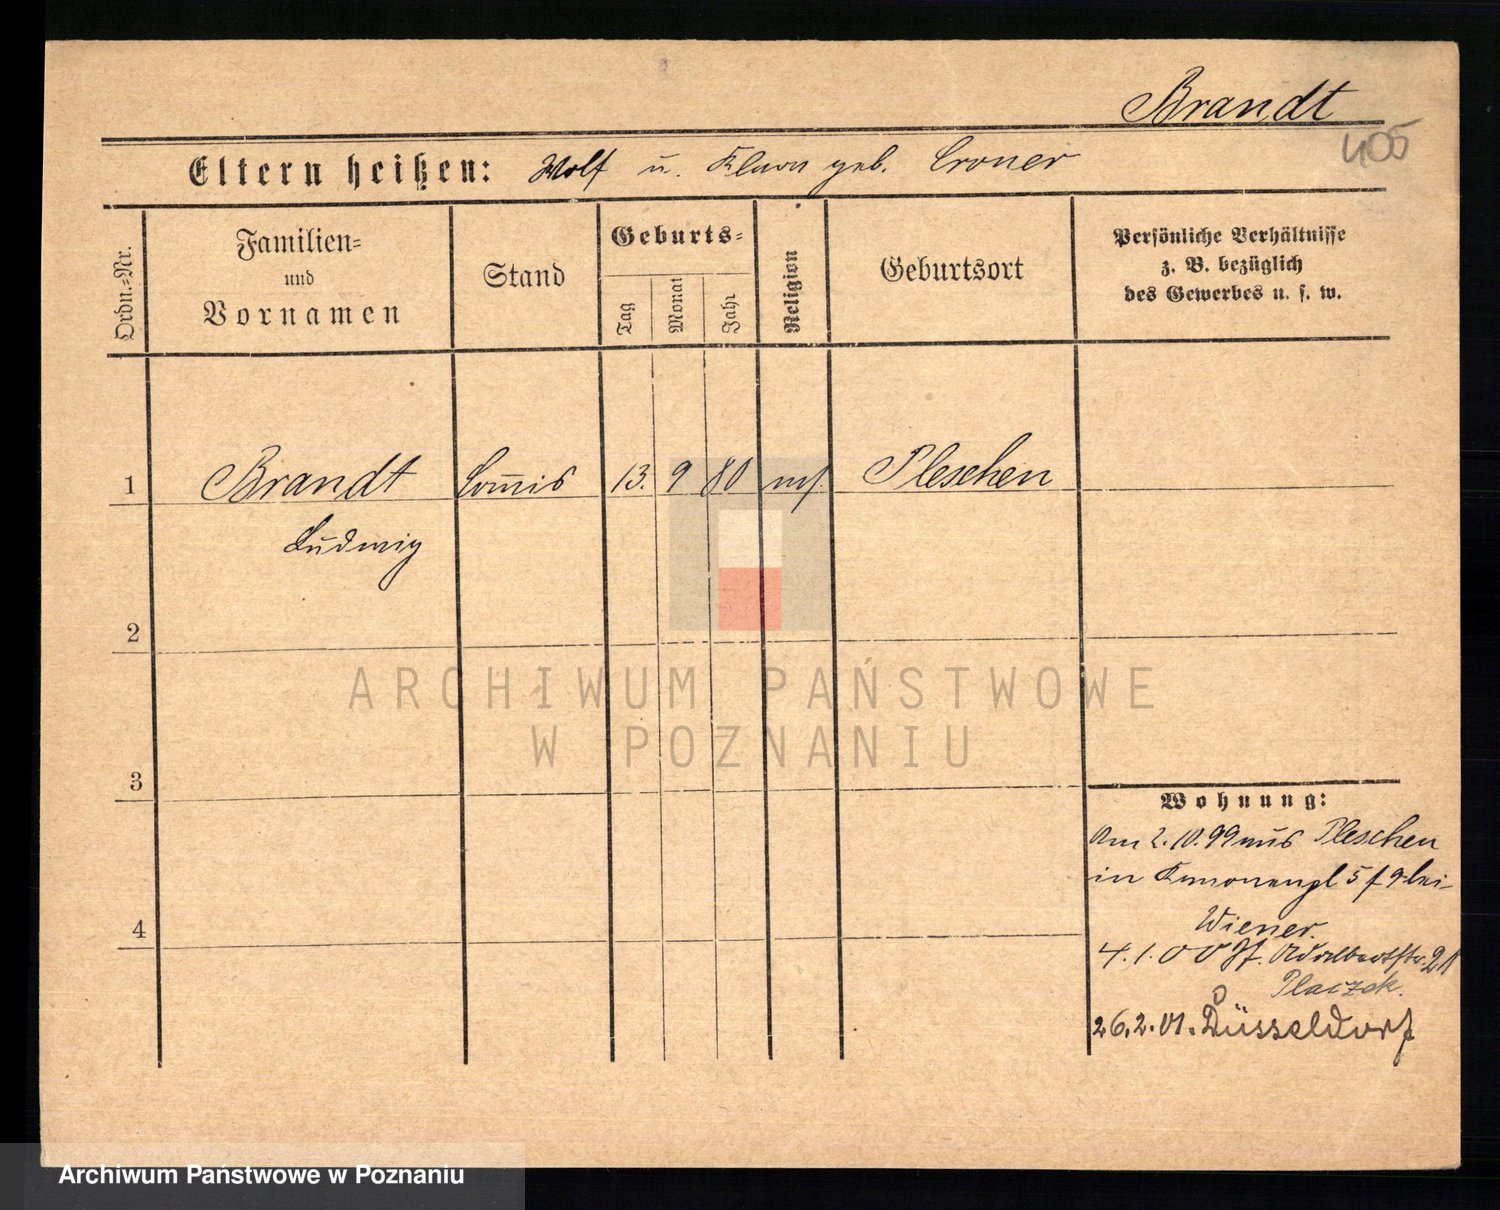 Brandt
405
Eltern heißen: Wolf u. Klara geb. Croner
Ordn.-Nr.
Familien-
und
Vornamen
Stand
Geburts-
Tag
Monat
Jahr
Religion
Geburtsort
Persönliche Verhältnisse
z. B. bezüglich
des Gewerbes u. s. w.
1 Brandt Commis 13. 9 80 Pleschen
Ludwig
2
3
4
Wohnung:
Am 2.10.99 aus Pleschen
in Kanonenpl 5 bei
Wiener.
4.1.00 Adalbertstr. 21
Placzek.
26.2.01. Düsseldorf
ARCHIWUM PAŃSTWOWE
W POZNANIU
Archiwum Państwowe w Poznaniu